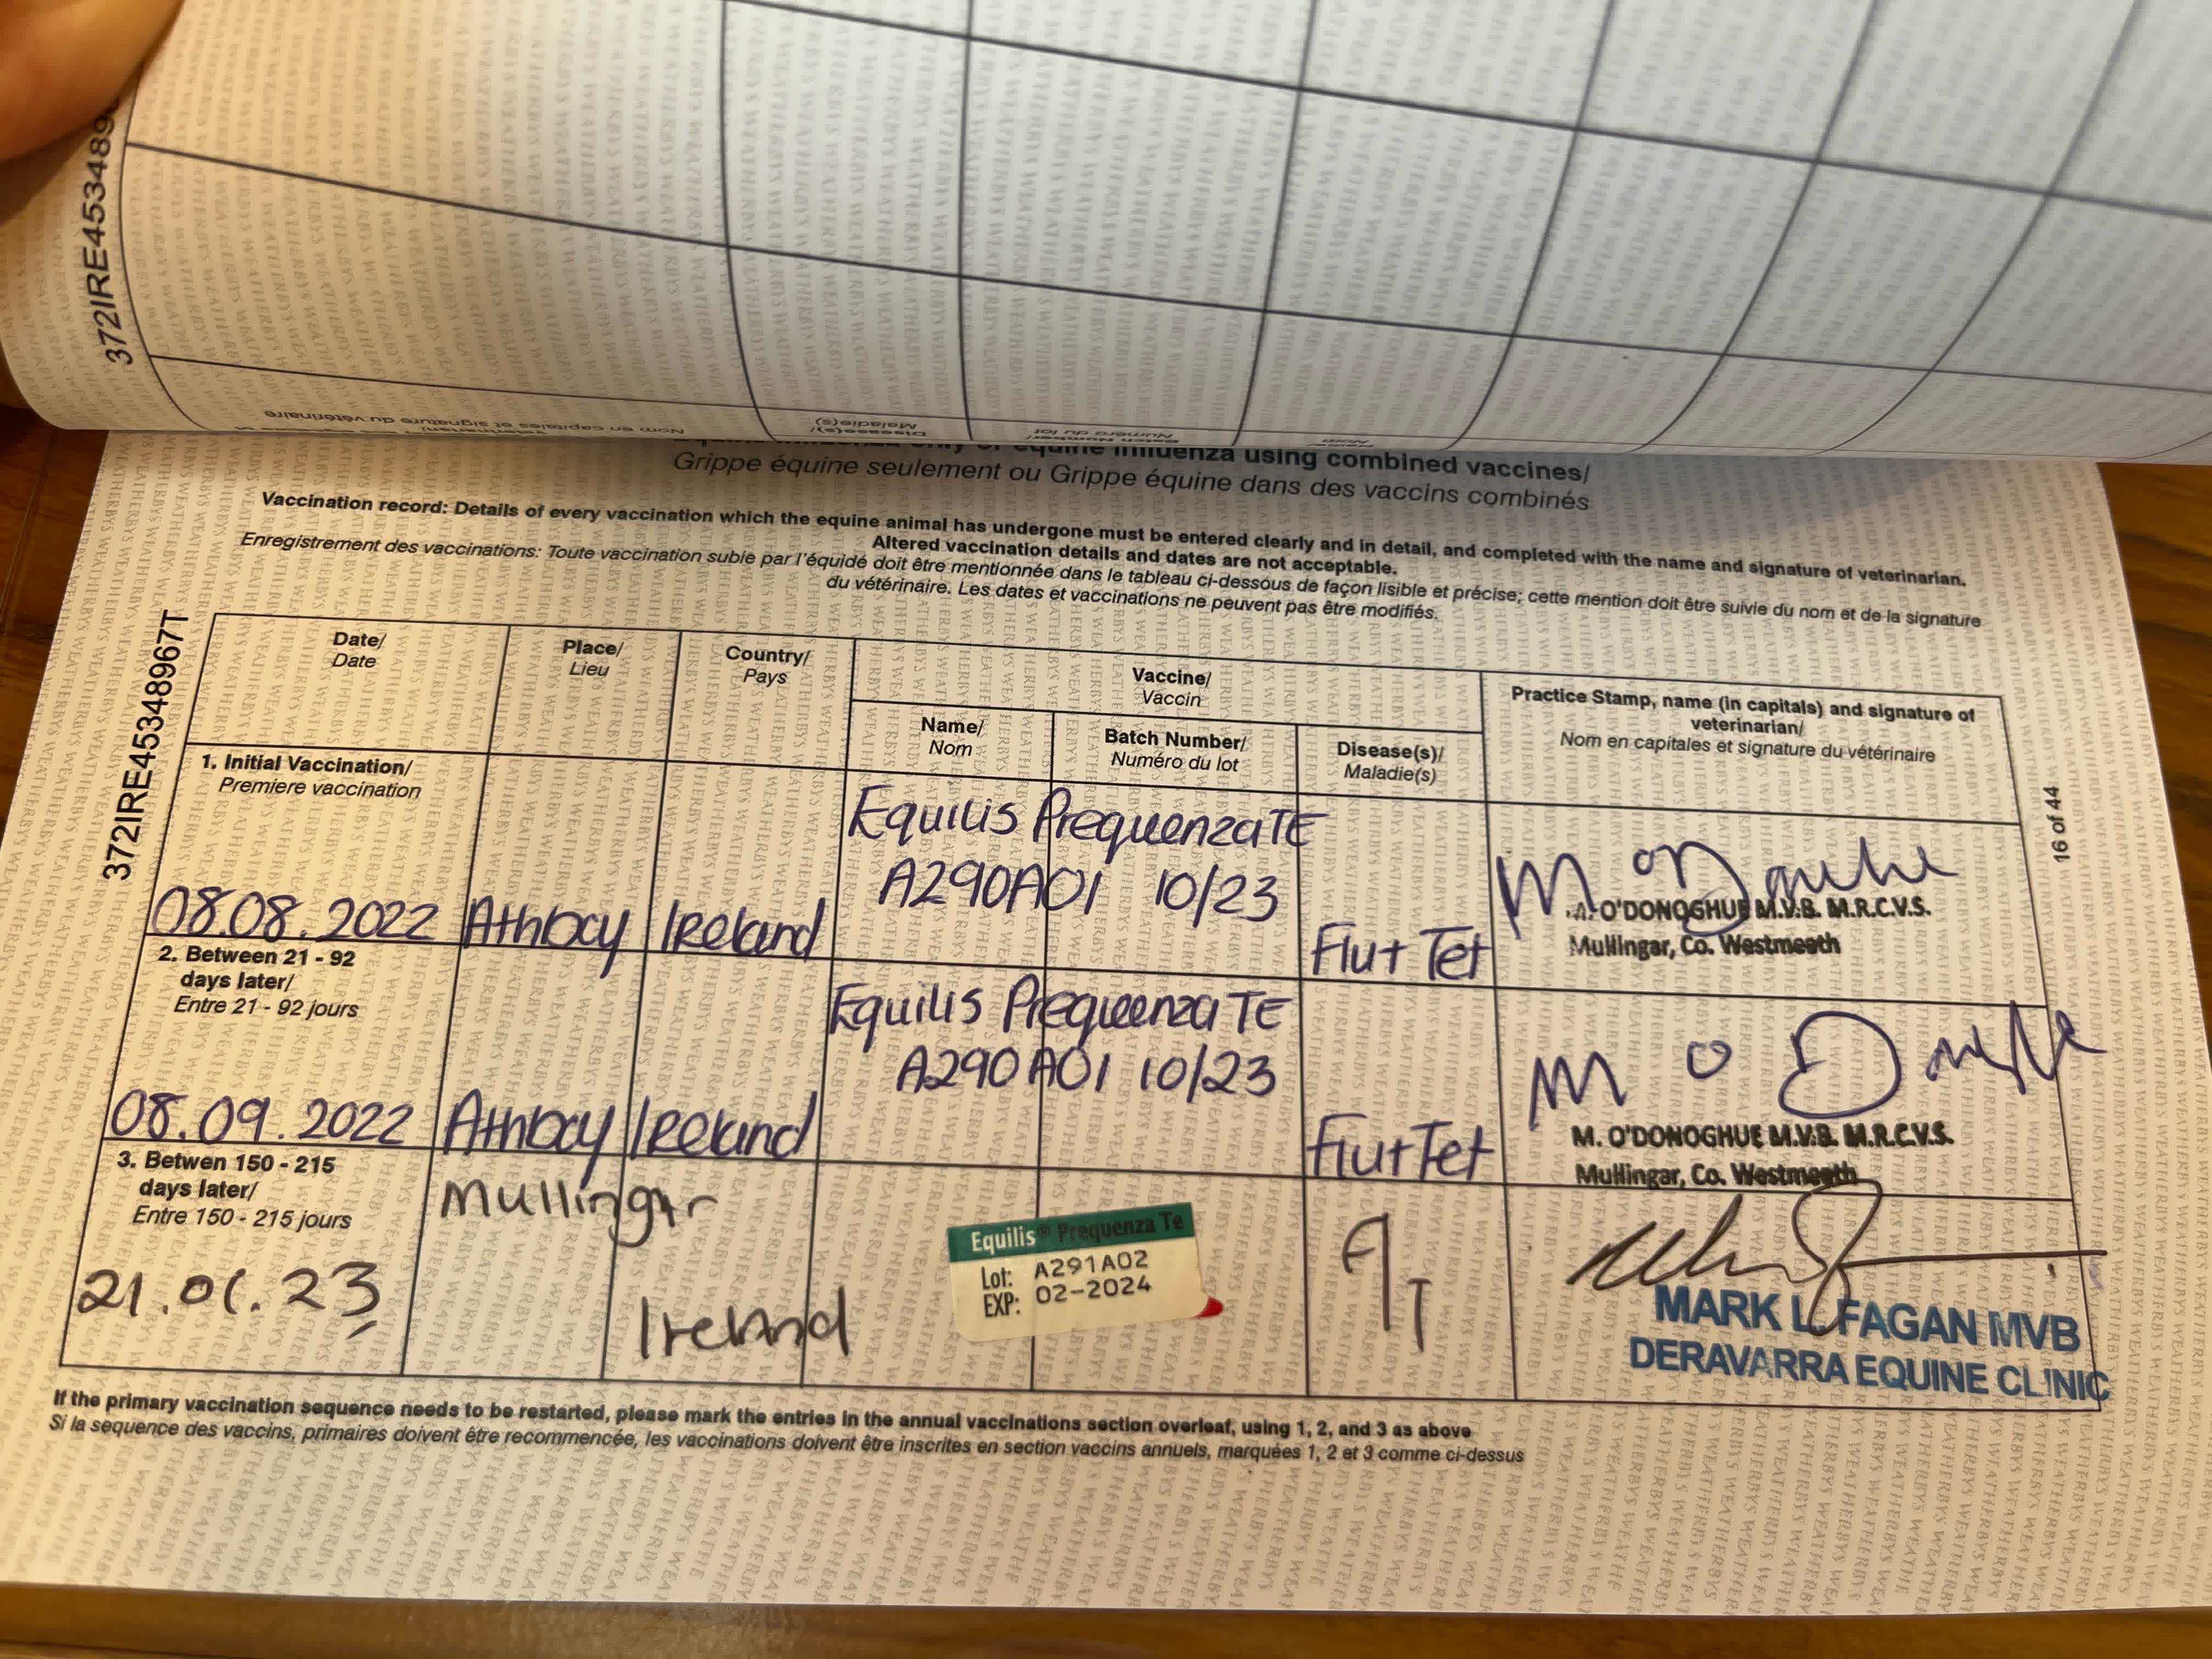 372IRE4534896
Nom en capitales et signature du vétérinaire
Disease(s)/
Maladie(s)
Batch Number/
Numéro du lot
Nom
only or equine influenza using combined vaccines/
Grippe équine seulement ou Grippe équine dans des vaccins combinés
Vaccination record: Details of every vaccination which the equine animal has undergone must be entered clearly and in detail, and completed with the name and signature of veterinarian.
Altered vaccination details and dates are not acceptable.
Enregistrement des vaccinations: Toute vaccination subie par l'équidé doit être mentionnée dans le tableau ci-dessous de façon lisible et précise; cette mention doit être suivie du nom et de la signature
du vétérinaire. Les dates et vaccinations ne peuvent pas être modifiés.
372IRE45348967T
Date/
Date
Place/
Lieu
Country/
Pays
Vaccine/
Vaccin
Name/
Nom
Batch Number/
Numéro du lot
Disease(s)/
Maladie(s)
Practice Stamp, name (in capitals) and signature of
veterinarian/
Nom en capitales et signature du vétérinaire
16 of 44
1. Initial Vaccination/
Premiere vaccination
08.08.2022 Athboy Ireland
Equilis Prequenza TE
A290A01 10/23
Flu+Tet
M. O'DONOGHUE M.V.B. M.R.C.V.S.
Mullingar, Co. Westmeath
2. Between 21 - 92
days later/
Entre 21 - 92 jours
08.09.2022 Athboy Ireland
Equilis Prequenza TE
A290A01 10/23
Flu+Tet
M. O'DONOGHUE M.V.B. M.R.C.V.S.
Mullingar, Co. Westmeath
3. Betwen 150 - 215
days later/
Entre 150 - 215 jours
21.01.23
Mullingar
Ireland
Equilis® Prequenza Te
Lot: A291A02
EXP: 02-2024
MARK L FAGAN MVB
DERAVARRA EQUINE CLINIC
If the primary vaccination sequence needs to be restarted, please mark the entries in the annual vaccinations section overleaf, using 1, 2, and 3 as above
Si la sequence des vaccins, primaires doivent étre recommencée, les vaccinations doivent être inscrites en section vaccins annuels, marquées 1, 2 et 3 comme ci-dessus